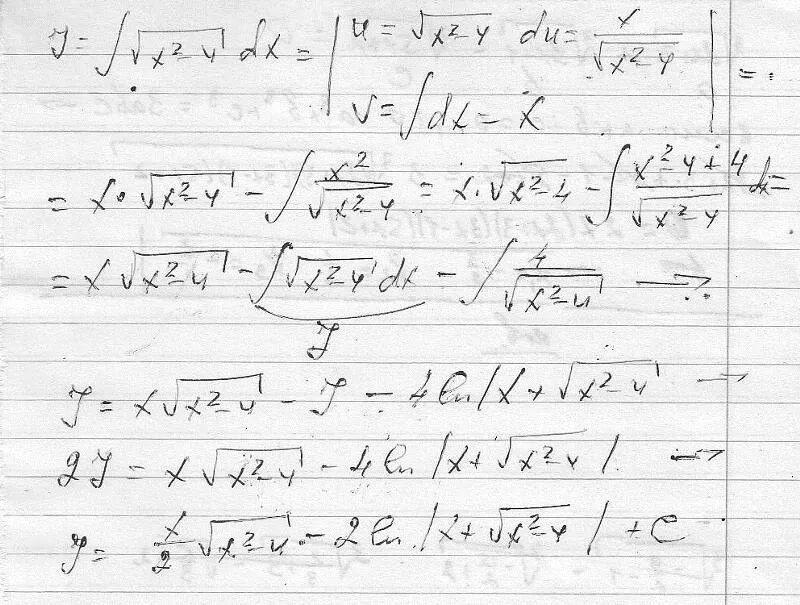 J = ∫ √(x²-4) dx = | u = √(x²-4) du = x/√(x²-4) | =
v = ∫dx = x
= x · √(x²-4) - ∫ x²/√(x²-4) = x · √(x²-4) - ∫ (x²-4+4)/√(x²-4) dx =
= x √(x²-4) - ∫ √(x²-4) dx - ∫ 4/√(x²-4) →
J
J = x √(x²-4) - J - 4 ln |x + √(x²-4) →
2J = x √(x²-4) - 4 ln |x + √(x²-4)| →
J = x/2 √(x²-4) - 2 ln |x + √(x²-4)| + C